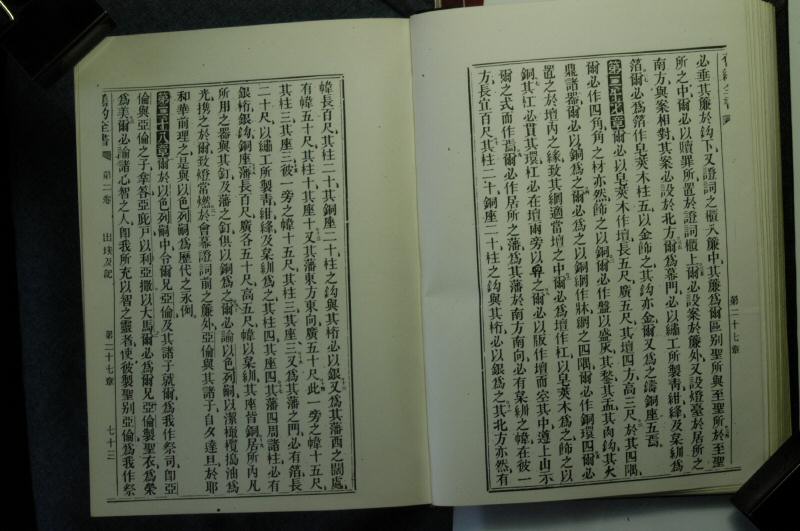 必垂其簾於鈎下又證詞之櫃入簾中其簾爲爾區别聖所與至聖所於至聖
所之中爾必以贖罪所置於證詞櫃上爾必設案於簾外又設燈臺於居所之
南方與案相對其案必設於北方爾爲幕門必以繡工所製靑紺絳及枲紃爲
箔爾必爲箔作皂莢木柱五以金飾之其鈎亦金爾又爲之鑄銅座五焉
第二十七章爾必以皂莢木作壇長五尺廣五尺其壇四方高三尺於其四隅
爾必作四角角之材亦然飾之以銅爾必作盤以盛灰其鏊其盂其肉鈎其火
鼎諸器爾必以銅爲之爾必爲之以銅網作牀網之四隅爾必作銅環四爾必
置之於壇内之緣致其網適當壇之中爾必爲壇作杠以皂莢木爲之飾之以
銅其杠必貫其環杠必在壇兩旁以舁之爾必以版作壇而空其中遵上山示
爾之式而作焉爾必作居所之藩爲其藩於南方南向必有枲紃之幃在彼一
方長宜百尺其柱二十銅座二十柱之鈎與其桁必以銀爲之其北方亦然有
幃長百尺其柱二十其銅座二十柱之鈎與其桁必以銀又爲其藩西之闊處
有幃五十尺其柱十其座十又其藩東方東向廣五十尺此一旁之幃十五尺
其柱三其座三彼一旁之幃十五尺其柱三其座三又爲其藩之門必有箔長
二十尺以繡工所製靑紺絳及枲紃爲之其柱四其座四其藩四周諸柱必有
銀桁銀鈎銅座藩長百尺廣各五十尺高五尺幃以枲紃其座皆銅居所内凡
所用之器與其釘及藩之釘俱以銅爲之爾必諭以色列嗣以潔橄欖搗油爲
光攜之於爾致燈當燃於會幕證詞前之簾外亞倫與其諸子自夕達旦於耶
和華前理之是與以色列嗣爲歷代之永例
第二十八章爾於以色列嗣中令爾兄亞倫及其諸子就爾爲我作祭司卽亞
倫與亞倫之子拿答亞庇戸以利亞撒以大馬爾必爲爾兄亞倫製聖衣爲榮
爲美爾必諭諸心智之人卽我所充以智之靈者使彼製聖别亞倫爲我作祭
舊約全書 第二卷 出埃及記 第二十七章 七十三